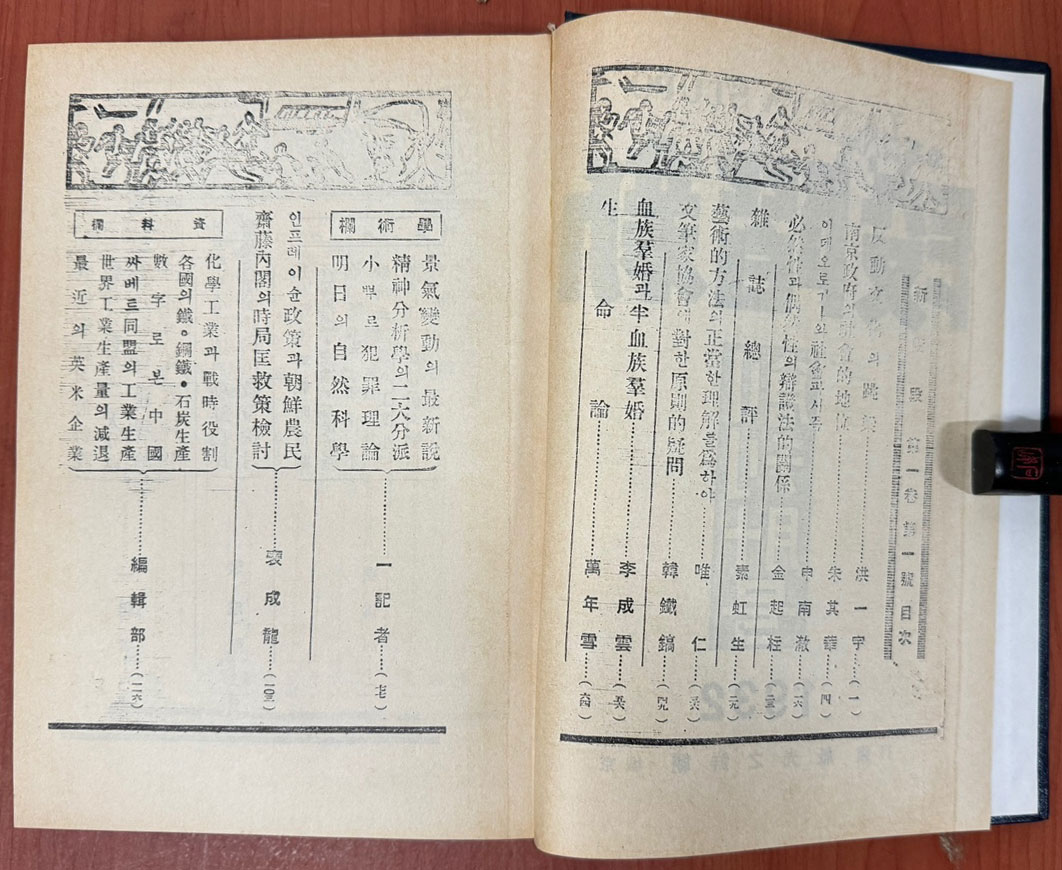 新階段 第一卷 第一號 目次
反動文化의 跳梁……洪一宇……(一)
南京政府의 社會的地位……朱其華……(四)
이데오로기―와 社會……申南澈……(一六)
必然性과 偶然性의 辯證法的關係……金起柱……(二三)
雜誌總評……素虹生……(二九)
藝術的方法의正當한理解를爲하야……唯仁……(三六)
文筆家協會에 對한原則的疑問……韓鐵鎬……(四九)
血族羣婚과 半血族羣婚……李成雲……(五六)
生命論……萬年雪……(六四)
學術欄
景氣變動의最新說
精神分析學의二大分派
小뿌르犯罪理論
明日의自然科學
一記者……(七七)
인프레이슌政策과朝鮮農民
齋藤內閣의時局匡救策檢討
裵成龍……(一〇三)
資料欄
化學工業과戰時役割
各國의鐵•鋼鐵•石炭生產
數字로본中國
싸베트同盟의工業生產
世界工業生產量의減退
最近의英米企業
編輯部……(一二六)